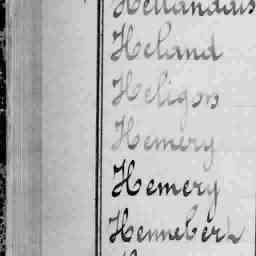 Hellandais
Heland
Heligon
Hemery
Hemery
Henneberk